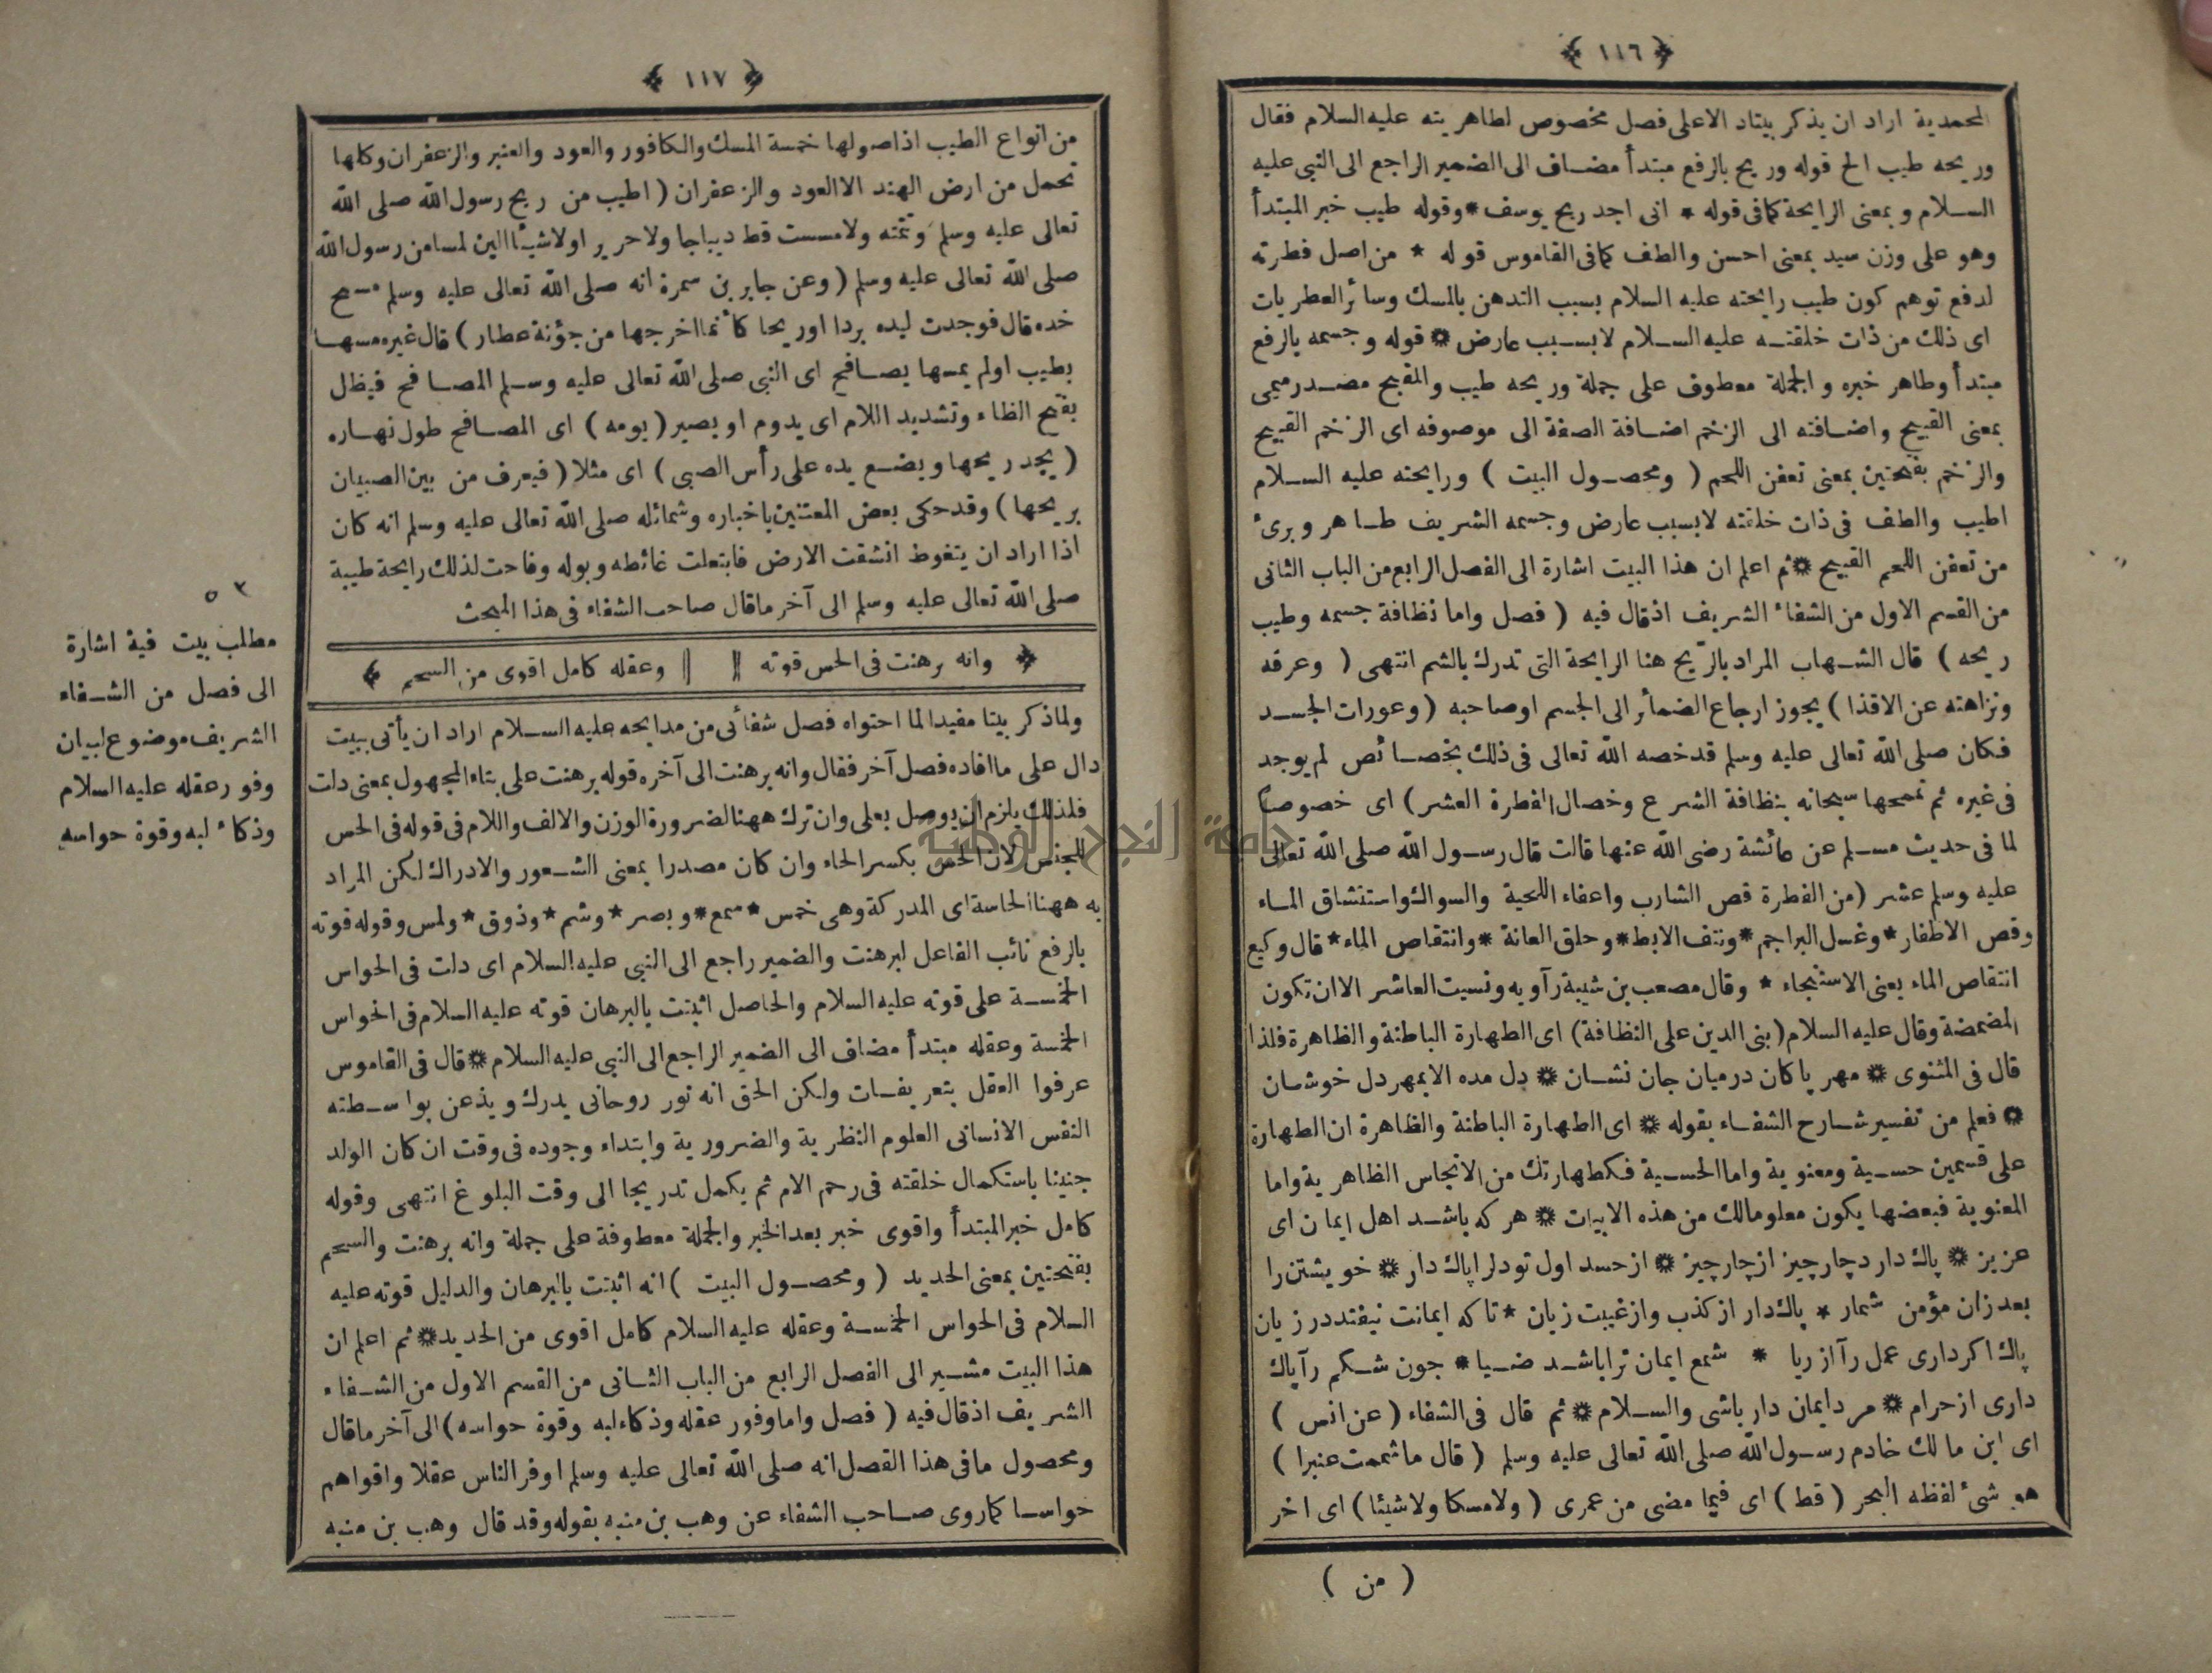 ﴿ ١١٦ ﴾
المحمدية اراد ان يذكر بيتاد الاعلى فصل مخصوص لطاهريته عليه السلام فقال
وريحه طيب الخ قوله وريح بالرفع مبتدأ مضاف الى الضمير الراجع الى النبى عليه
السلام وبمعنى الرايحة كما فى قوله * انى اجد ريح يوسف * وقوله طيب خبر المبتدأ
وهو على وزن سيد بمعنى احسن والطف كما فى القاموس قوله * من اصل فطرته
لدفع توهم كون طيب رايحته عليه السلام بسبب التدهن بالمسك وسائر العطريات
اى ذلك من ذات خلقته عليه السلام لا بسبب عارض * قوله وجسمه بالرفع
مبتدأ وطاهر خبره والجملة معطوف على جملة وريحه طيب والمقبح مصدر ميمى
بمعنى القبيح واضافته الى الزخم اضافة الصفة الى موصوفه اى الزخم القبيح
والزخم بفتحتين بمعنى تعفن اللحم ( ومحصول البيت ) ورايحته عليه السلام
اطيب والطف فى ذات خلقته لا بسبب عارض وجسمه الشريف طاهر وبرئ
من تعفن اللحم القبيح * ثم اعلم ان هذا البيت اشارة الى الفصل الرابع من الباب الثانى
من القسم الاول من الشفاء الشريف اذ قال فيه ( فصل واما نظافة جسمه وطيب
ريحه ) قال الشهاب المراد بالريح هنا الرايحة التى تدرك بالشم انتهى ( وعرفه
ونزاهته عن الاقذا ) يجوز ارجاع الضمائر الى الجسم اوصاحبه ( وعورات الجسد
فكان صلى الله تعالى عليه وسلم قد خصه الله تعالى فى ذلك بخصائص لم يوجد
فى غيره ثم تممها سبحانه بنظافة الشرع وخصال الفطرة العشر ) اى خصوصا
لما فى حديث مسلم عن عائشة رضى الله عنها قالت قال رسول الله صلى الله تعالى
عليه وسلم عشر ( من الفطرة قص الشارب واعفاء اللحية والسواك واستنشاق الماء
وقص الاظفار * وغسل البراجم * ونتف الابط * وحلق العانة * وانتقاص الماء * قال وكيع
انتقاص الماء يعنى الاستنجاء * وقال مصعب بن شيبة رآويه ونسيت العاشر الا ان تكون
المضمضة وقال عليه السلام ( بنى الدين على النظافة ) اى الطهارة الباطنة والظاهرة فلذا
قال فى المثنوى * مهر پاكان درميان جان نشان * دل مده الا بمهر دل خوشان
* فعلم من تفسير شارح الشفاء بقوله * اى الطهارة الباطنة والظاهرة ان الطهارة
على قسمين حسية ومعنوية واما الحسية فكطهارتك من الانجاس الظاهرية واما
المعنوية فبعضها يكون معلوما لك من هذه الابيات * هركه باشد اهل ايمان اى
عزيز * پاك دارد چار چيز از چار چيز * از حسد اول تو دلرا پاك دار * خويشتن را
بعد زان مؤمن شمار * پاك دار از كذب واز غيبت زبان * تاكه ايمانت نيفتد در زيان
پاك اكر دارى عمل رآ از ريا * شمع ايمان ترا باشد ضيا * جون شكم رآ پاك
دارى از حرام * مرد ايمان دار باشى والسلام * ثم قال فى الشفاء ( عن انس )
اى ابن مالك خادم رسول الله صلى الله تعالى عليه وسلم ( قال ما شممت عنبرا )
هو شئ لفظه البحر ( قط ) اى فيما مضى من عمرى ( ولا مسكا ولا شيئا ) اى اخر
( من )
﴿ ١١٧ ﴾
من انواع الطيب اذ اصولها خمسة المسك والكافور والعود والعنبر والزعفران وكلها
تحمل من ارض الهند الا العود والزعفران ( اطيب من ريح رسول الله صلى الله
تعالى عليه وسلم وتتمته ولا مسست قط ديباجا ولا حريرا ولا شيئا الين لمسا من رسول الله
صلى الله تعالى عليه وسلم ( وعن جابر بن سمرة انه صلى الله تعالى عليه وسلم مسح
خده قال فوجدت ليده بردا اوريحا كأنما اخرجها من جؤنة عطار ) قال غيره مسها
بطيب اولم يمسها يصافح اى النبى صلى الله تعالى عليه وسلم المصافح فيظل
بفتح الظاء وتشديد اللام اى يدوم او يصير ( يومه ) اى المصافح طول نهاره
( يجد ريحها ويضع يده على رأس الصبى ) اى مثلا ( فيعرف من بين الصبيان
بريحها ) وقد حكى بعض المعتنين باخباره وشمائله صلى الله تعالى عليه وسلم انه كان
اذا اراد ان يتغوط انشقت الارض فابتعلت غائطه وبوله وفاحت لذلك رايحة طيبة
صلى الله تعالى عليه وسلم الى آخر ما قال صاحب الشفاء فى هذا المبحث
﴿ وانه برهنت فى الحس قوته ‖ ‖ وعقله كامل اقوى من السحم ﴾
ولما ذكر بيتا مفيدا لما احتواه فصل شفائى من مدايحه عليه السلام اراد ان يأتى ببيت
دال على ما افاده فصل آخر فقال وانه برهنت الى آخره قوله برهنت على بناء المجهول بمعنى دلت
فلذلك يلزم ان يوصل بعلى وان ترك ههنا لضرورة الوزن والالف واللام فى قوله فى الحس
للجنس لان الحس بكسر الحاء وان كان مصدرا بمعنى الشعور والادراك لكن المراد
به ههنا الحاسة اى المدركة وهى خمس * سمع * وبصر * وشم * وذوق * ولمس وقوله قوته
بالرفع نائب الفاعل لبرهنت والضمير راجع الى النبى عليه السلام اى دلت فى الحواس
الخمسة على قوته عليه السلام والحاصل اثبتت بالبرهان قوته عليه السلام فى الحواس
الخمسة وعقله مبتدأ مضاف الى الضمير الراجع الى النبى عليه السلام * قال فى القاموس
عرفوا العقل بتعريفات ولكن الحق انه نور روحانى يدرك ويذعن بواسطته
النفس الانسانى العلوم النظرية والضرورية وابتداء وجوده فى وقت ان كان الولد
جنينا باستكمال خلقته فى رحم الام ثم يكمل تدريجا الى وقت البلوغ انتهى وقوله
كامل خبر المبتدأ واقوى خبر بعد الخبر والجملة معطوفة على جملة وانه برهنت والسحم
بفتحتين بمعنى الحديد ( ومحصول البيت ) انه اثبتت بالبرهان والدليل قوته عليه
السلام فى الحواس الخمسة وعقله عليه السلام كامل اقوى من الحديد * ثم اعلم ان
هذا البيت مشير الى الفصل الرابع من الباب الثانى من القسم الاول من الشفاء
الشريف اذ قال فيه ( فصل واما وفور عقله وذكاء لبه وقوة حواسه ) الى آخر ما قال
ومحصول ما فى هذا الفصل انه صلى الله تعالى عليه وسلم اوفر الناس عقلا واقواهم
حواسا كما روى صاحب الشفاء عن وهب بن منبه بقوله وقد قال وهب بن منبه
٥٣
مطلب بيت فية اشارة
الى فصل من الشفاء
الشريف موضوع لبيان
وفور عقله عليه السلام
وذكاء لبه وقوة حواسه
جامعة النجاح الوطنية